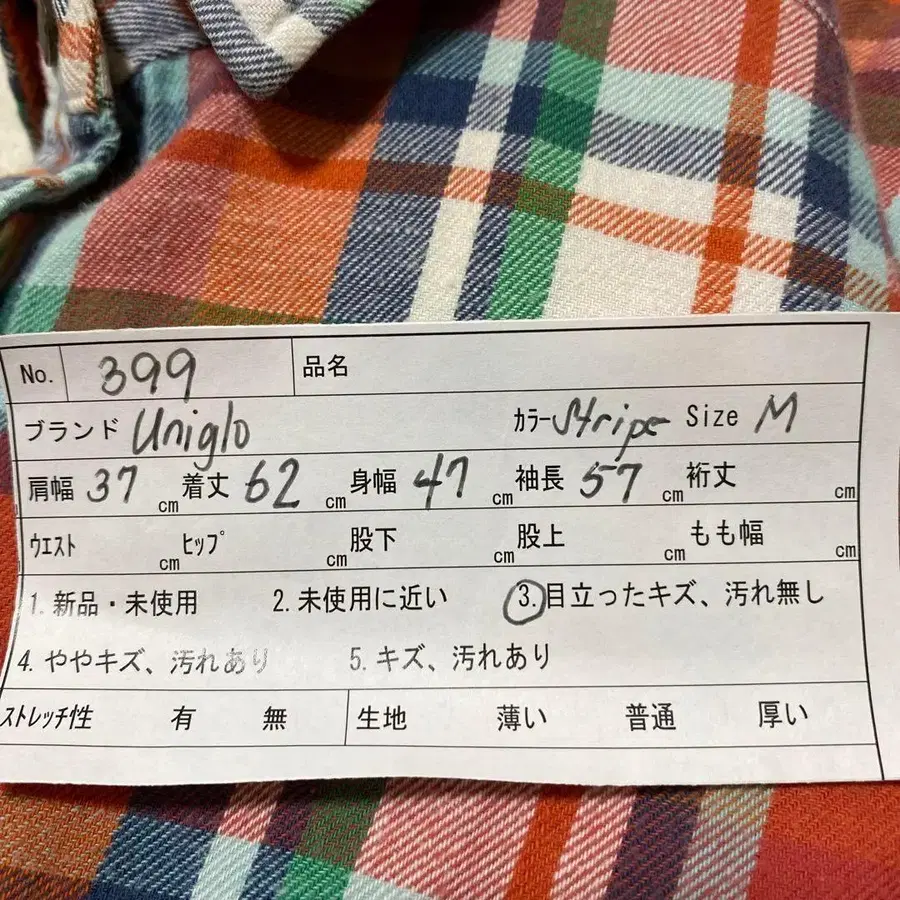 No. 399 品名
ブランド Uniglo カラー Stripe Size M
肩幅 37 cm 着丈 62 cm 身幅 47 cm 袖長 57 cm 裄丈 cm
ウエスト cm ヒップ cm 股下 cm 股上 cm もも幅 cm
1. 新品・未使用 2. 未使用に近い 3. 目立ったキズ、汚れ無し
4. ややキズ、汚れあり 5. キズ、汚れあり
ストレッチ性 有 無 生地 薄い 普通 厚い